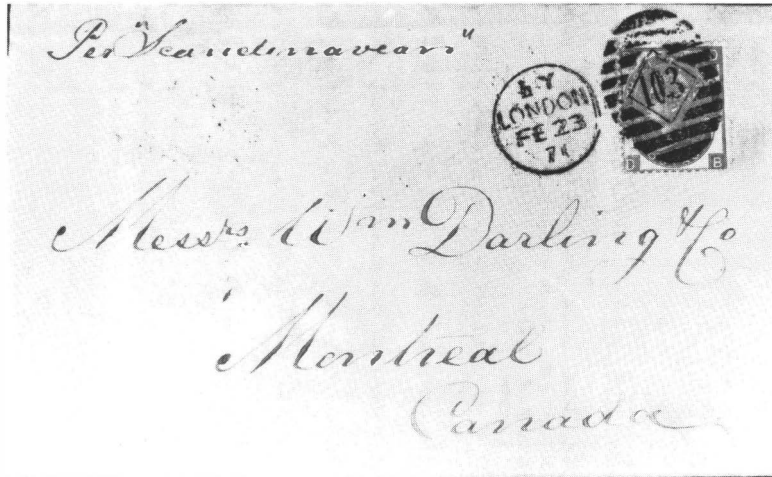 Per "Scandinavian"
LY
LONDON
FE 23
71
103
D B
Messrs. Wm Darling & Co
Montreal
Canada